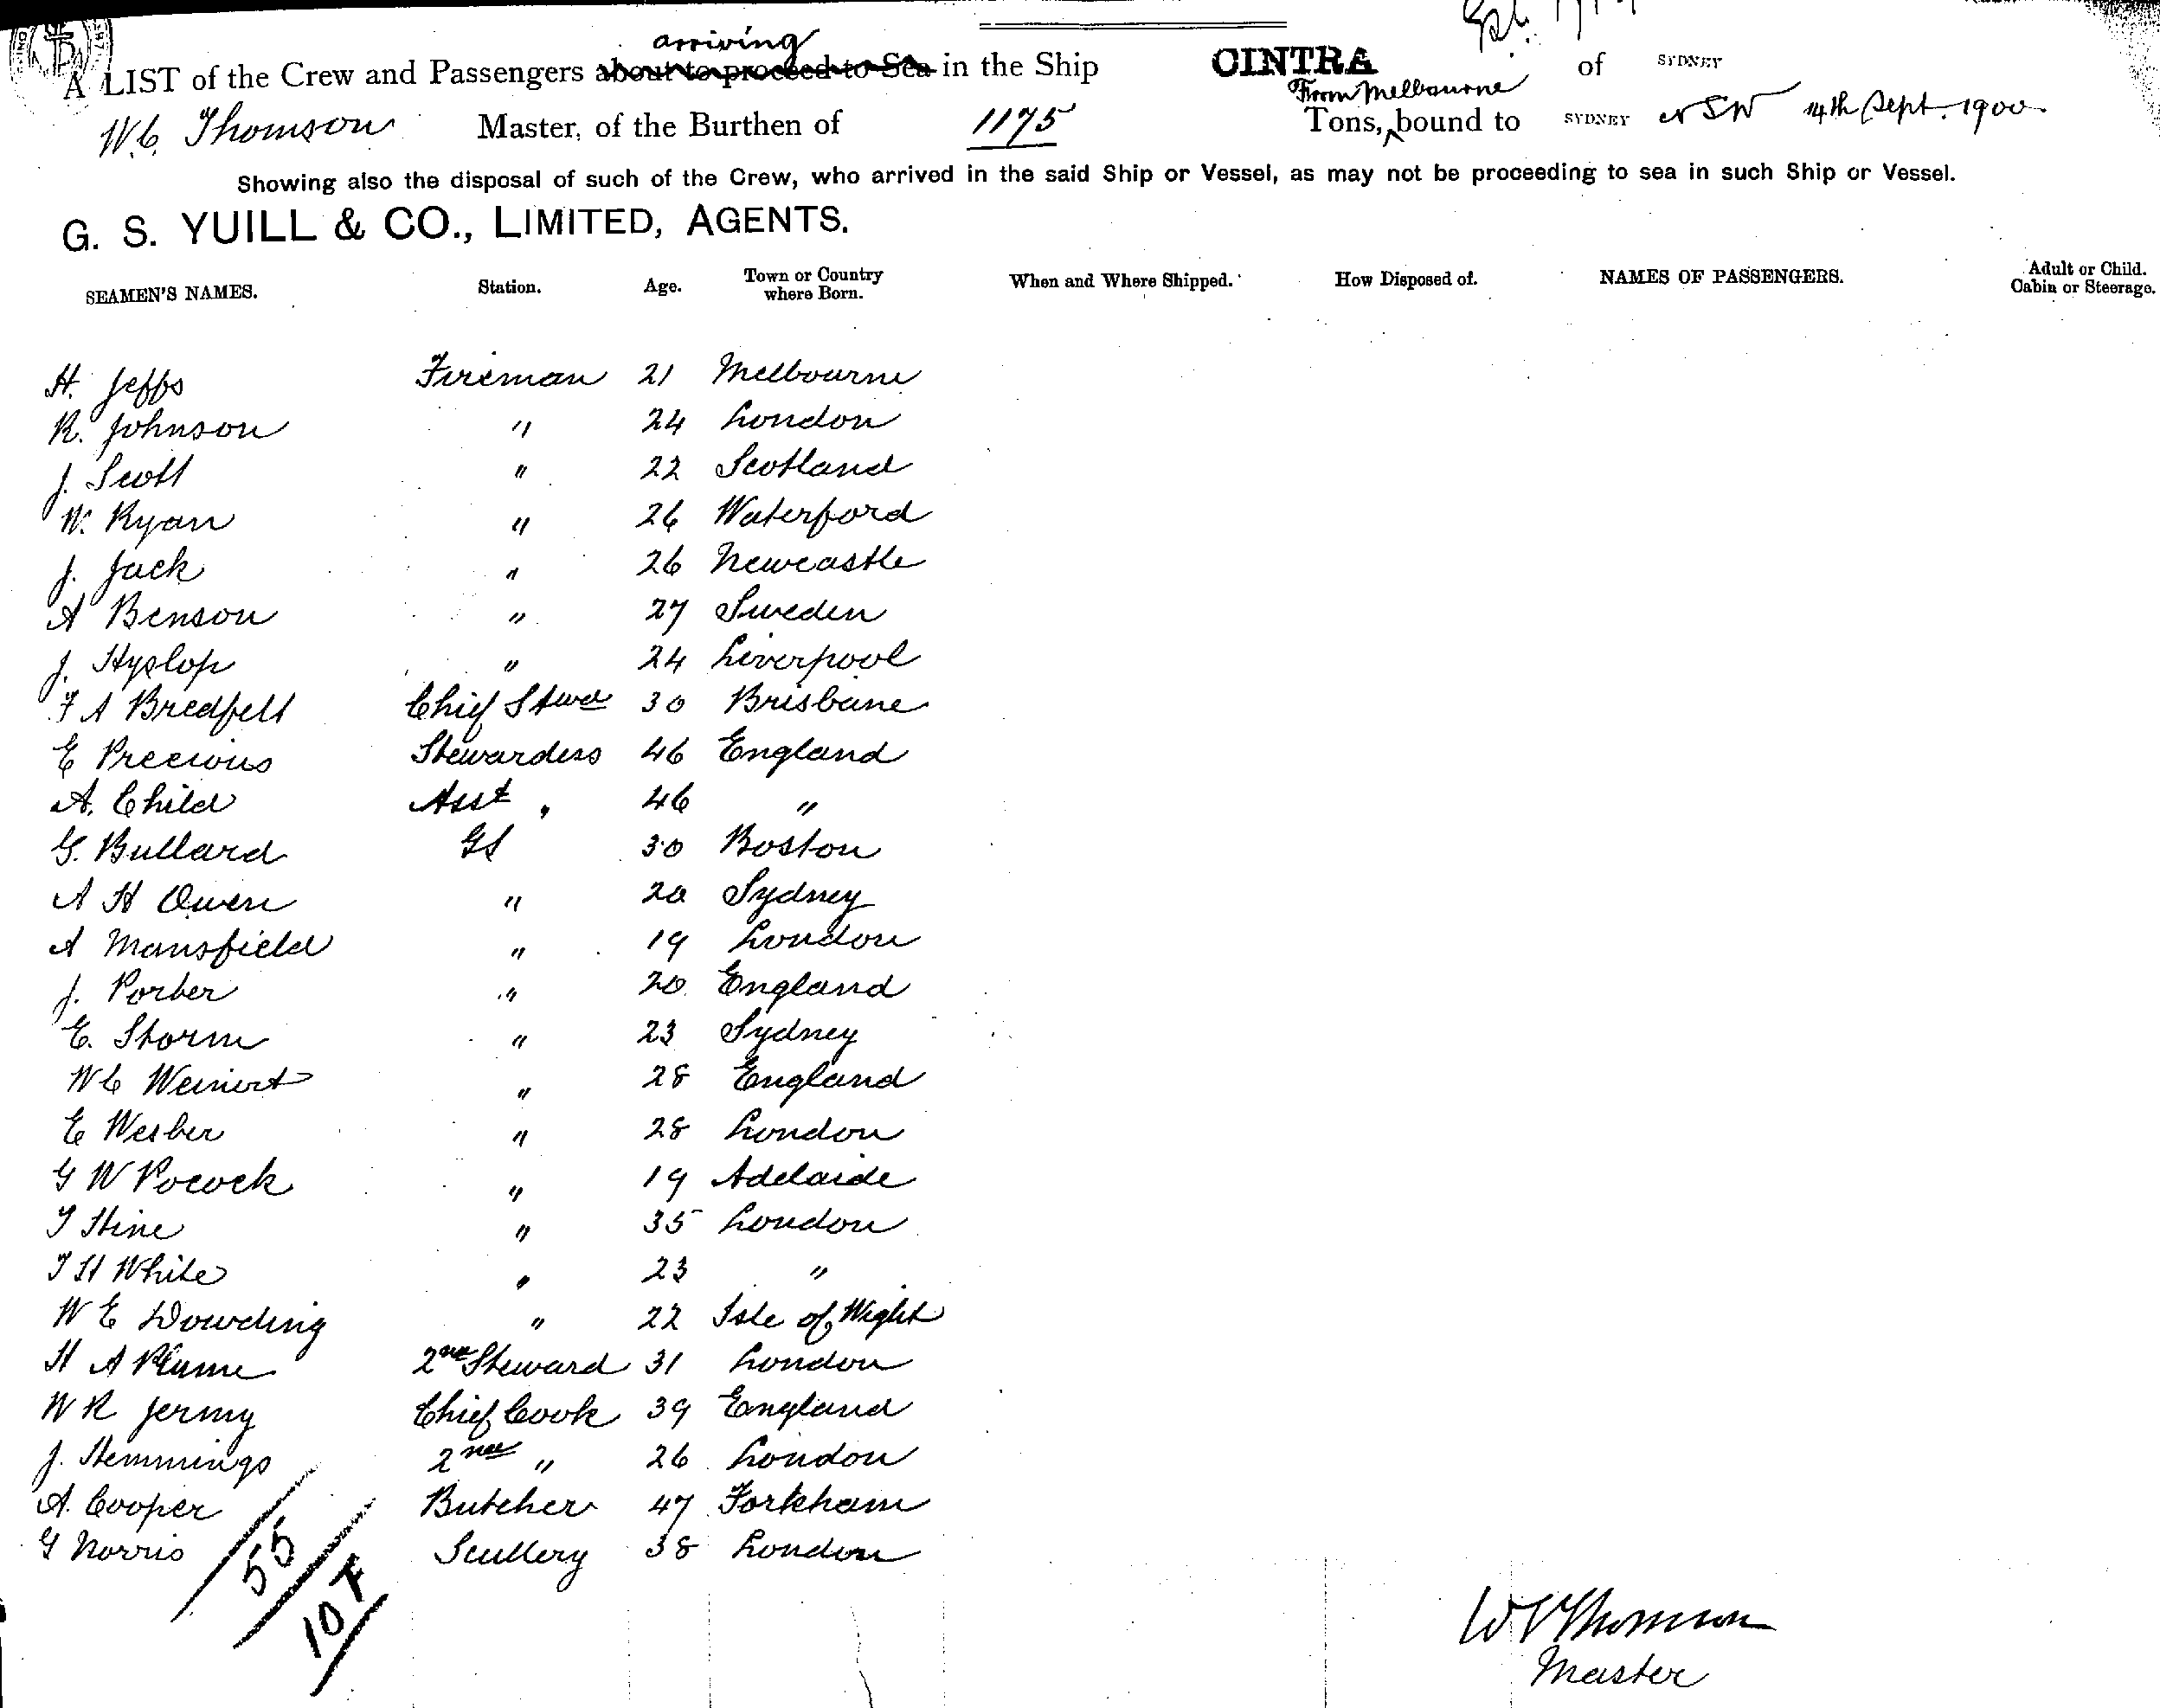 arriving
A LIST of the Crew and Passengers about to proceed to Sea in the Ship CINTRA of SYDNEY
From Melbourne
W. C. Thomson Master, of the Burthen of 1175 Tons, bound to SYDNEY NSW 14th Sept. 1900
Showing also the disposal of such of the Crew, who arrived in the said Ship or Vessel, as may not be proceeding to sea in such Ship or Vessel.
G. S. YUILL & CO., LIMITED, AGENTS.
SEAMEN'S NAMES. Station. Age. Town or Country where Born. When and Where Shipped. How Disposed of. NAMES OF PASSENGERS. Adult or Child. Cabin or Steerage.
H. Jeffs Fireman 21 Melbourne
R. Johnson " 24 London
J. Scott " 22 Scotland
W. Ryan " 26 Waterford
J. Jack " 26 Newcastle
A Benson " 27 Sweden
J. Hyslop " 24 Liverpool
F A Bredfelt Chief Stwd 30 Brisbane
E Precious Stewardess 46 England
A. Child Asst " 46 "
G. Bullard GS 30 Boston
A H Owen " 20 Sydney
A Mansfield " 19 London
J. Porter " 20 England
E. Storm " 23 Sydney
W C Weinert " 28 England
E Wesber " 28 London
G W Pocock " 19 Adelaide
T Hine " 35 London
T H White " 23 "
W E Dowding " 22 Isle of Wight
H A Plume 2nd Steward 31 London
W R Jermy Chief Cook 39 England
J. Hemmings 2nd " 26 London
A. Cooper Butcher 47 Forkham
G Norris Scullery 38 London
55
10 F
W C Thomson
Master